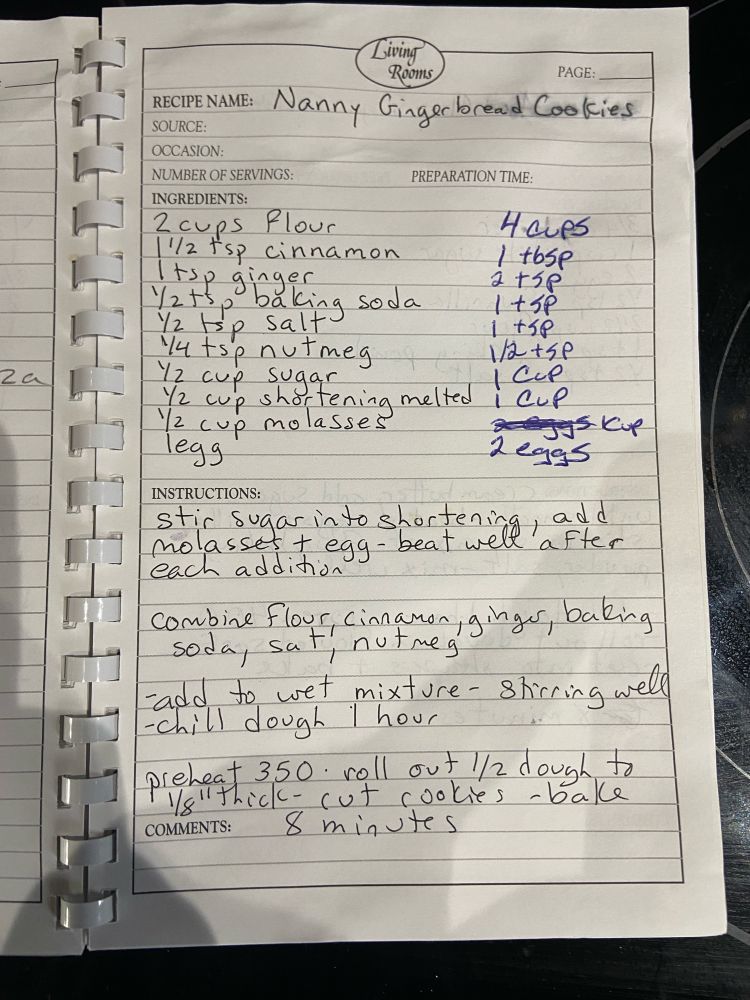 Living
Rooms
PAGE:
RECIPE NAME: Nanny Gingerbread Cookies
SOURCE:
OCCASION:
NUMBER OF SERVINGS: PREPARATION TIME:
INGREDIENTS:
2 cups flour 4 cups
1 1/2 tsp cinnamon 1 tbsp
1 tsp ginger 2 tsp
1/2 tsp baking soda 1 tsp
1/2 tsp salt 1 tsp
1/4 tsp nutmeg 1/2 tsp
1/2 cup sugar 1 cup
1/2 cup shortening melted 1 cup
1/2 cup molasses 2 eggs 1cup
1egg 2 eggs
INSTRUCTIONS:
stir sugar into shortening, add
molasses + egg - beat well after
each addition
combine flour, cinnamon, ginger, baking
soda, salt, nutmeg
-add to wet mixture - stirring well
-chill dough 1 hour
preheat 350. roll out 1/2 dough to
1/8" thick - cut cookies - bake
COMMENTS: 8 minutes
2a